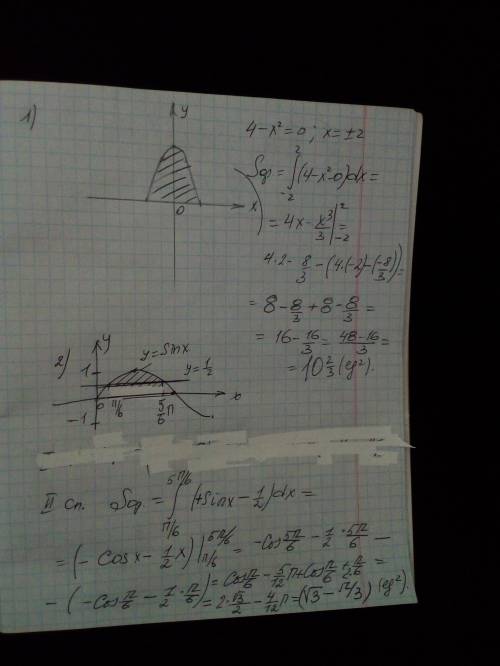 1)
y
x
0
4-x²=0; x=±2
Sф=∫₋₂²(4-x²-0)dx=
=4x-x³/3|₋₂²=
4·2-8/3-(4·(-2)-(-8/3))=
=8-8/3+8-8/3=
=16-16/3=48-16/3=
=10 2/3 (eg²).
2)
y
y=Sinx
y=1/2
1
0
π/6
5/6π
x
-1
II сп. Sф=∫π/6^5π/6(+Sinx-1/2)dx=
=(-Cosx-1/2x)|π/6^5π/6=-Cos5π/6-1/2·5π/6-
-(-Cosπ/6-1/2·π/6)=Cosπ/6-5/12π+Cosπ/6+π/2·6=
=2·√3/2-4/12π=(√3-π/3)(eg²).